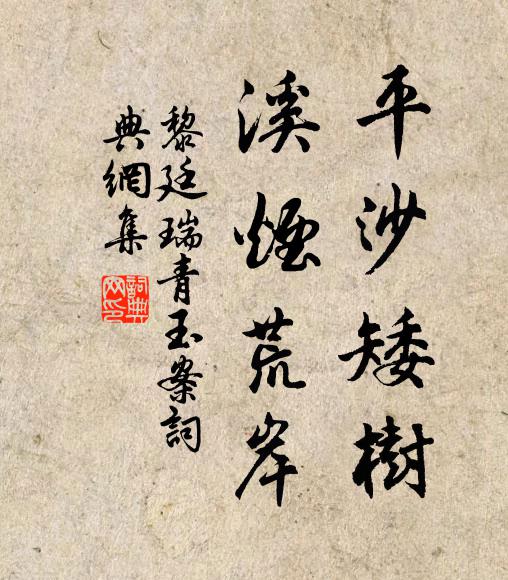 平沙矮樹
溪煙荒岸
黎廷瑞青玉案詞
典網集
詞典網印